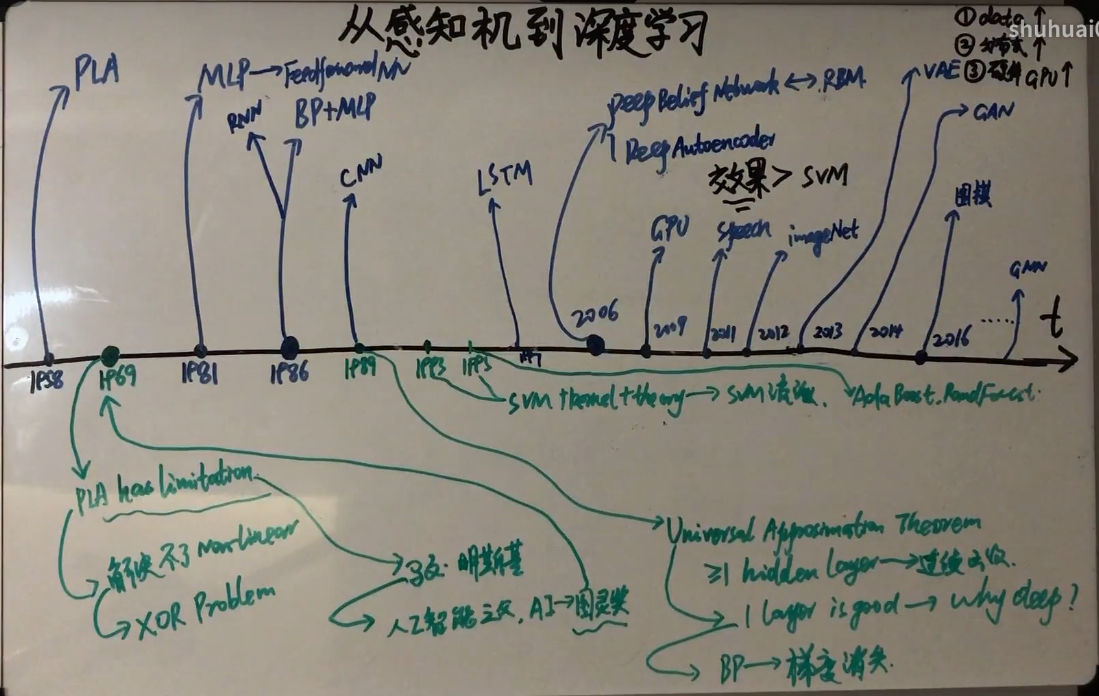 从感知机到深度学习
① data ↑
shuhuai
② 分布式 ↑
③ 硬件 GPU ↑
PLA
MLP → Feedforward NN
RNN
BP+MLP
CNN
LSTM
Deep Belief Network ↔ RBM
Deep Autoencoder
效果 > SVM
GPU
Speech
imageNet
VAE
GAN
围棋
GNN
......
t
1958
1969
1981
1986
1989
1993
1995
1997
2006
2009
2011
2012
2013
2014
2016
SVM + kernel + theory → SVM流派.
AdaBoost. RandForest.
PLA has limitation
解决不了 non-linear
XOR Problem
明斯基
人工智能之父. AI → 图灵奖
Universal Approximation Theorem
≥1 hidden layer → 连续函数.
1 layer is good → why deep?
BP → 梯度消失.